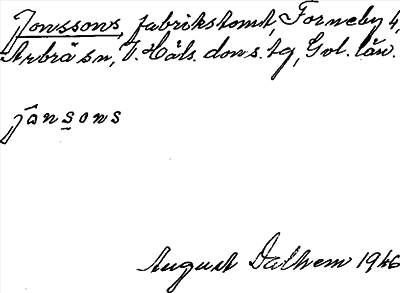 Jonssons, fabrikstomt, Forneby 4,
Arbrå sn, V. Häls. doms. tg, Gvl. län.
jånsons
August Dalhem 1946